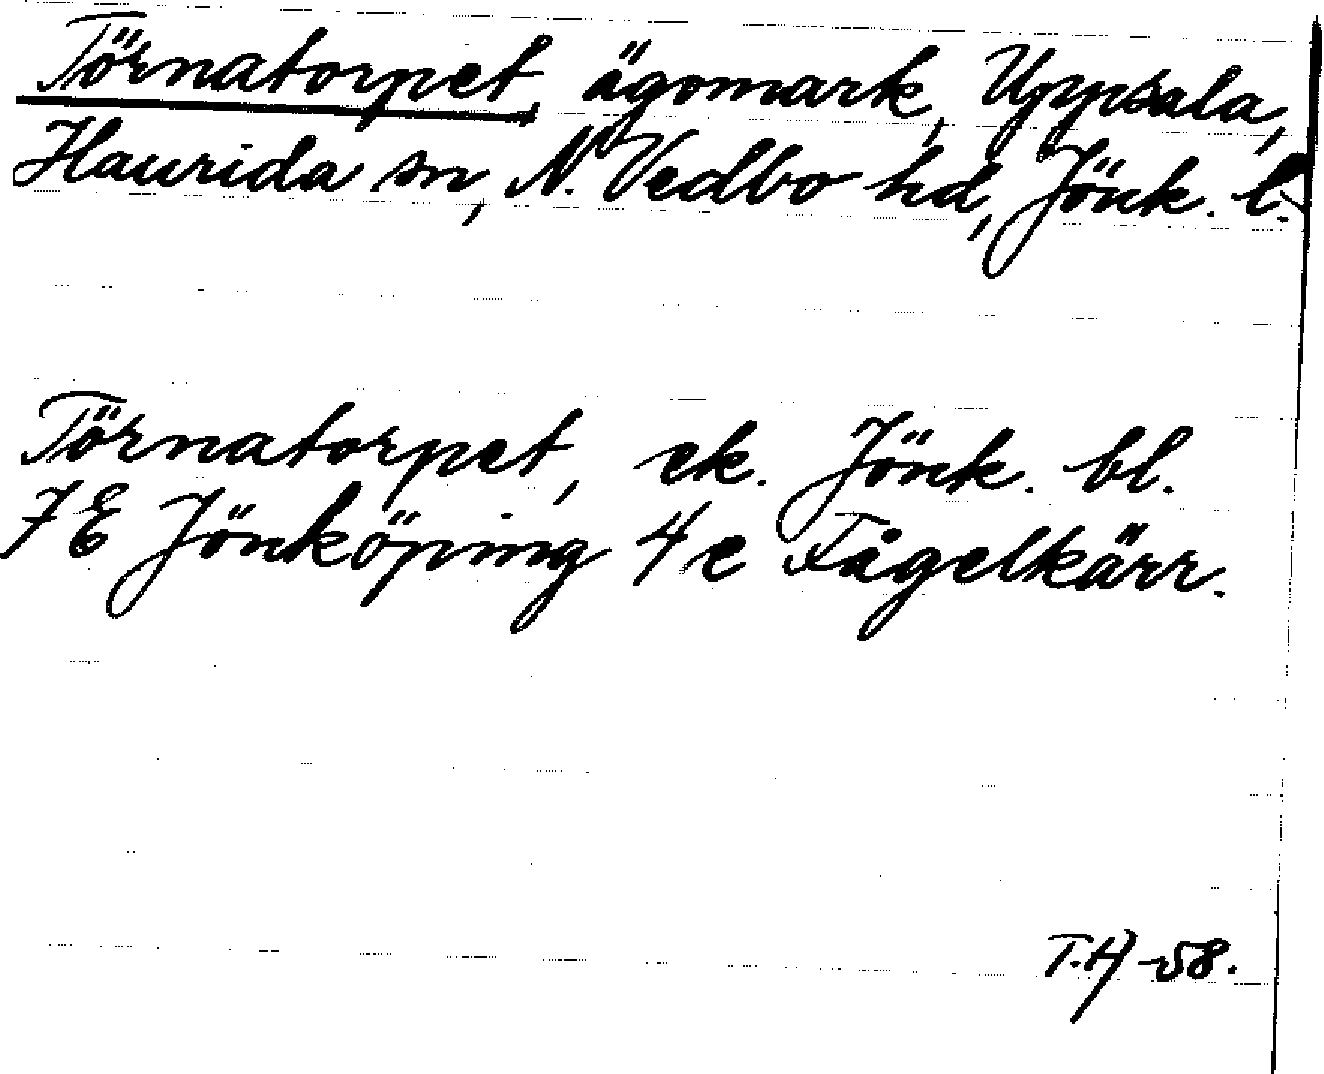 Törnatorpet, ägomark, Uppsala,
Haurida sn, N. Vedbo hd, Jönk. l.
Törnatorpet, ek. Jönk. bl.
7E Jönköping 4e Fågelkärr.
T.H -58.